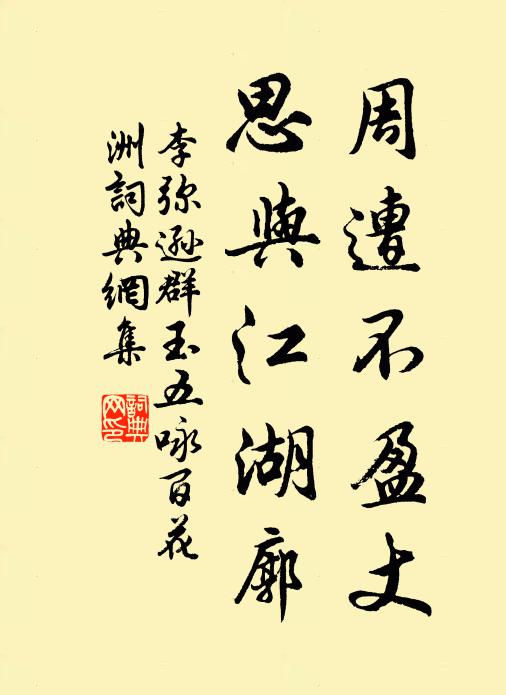 周遭不盈丈
思與江湖廓
李弥逊群玉五咏百花
洲詞典網集
詞典网印